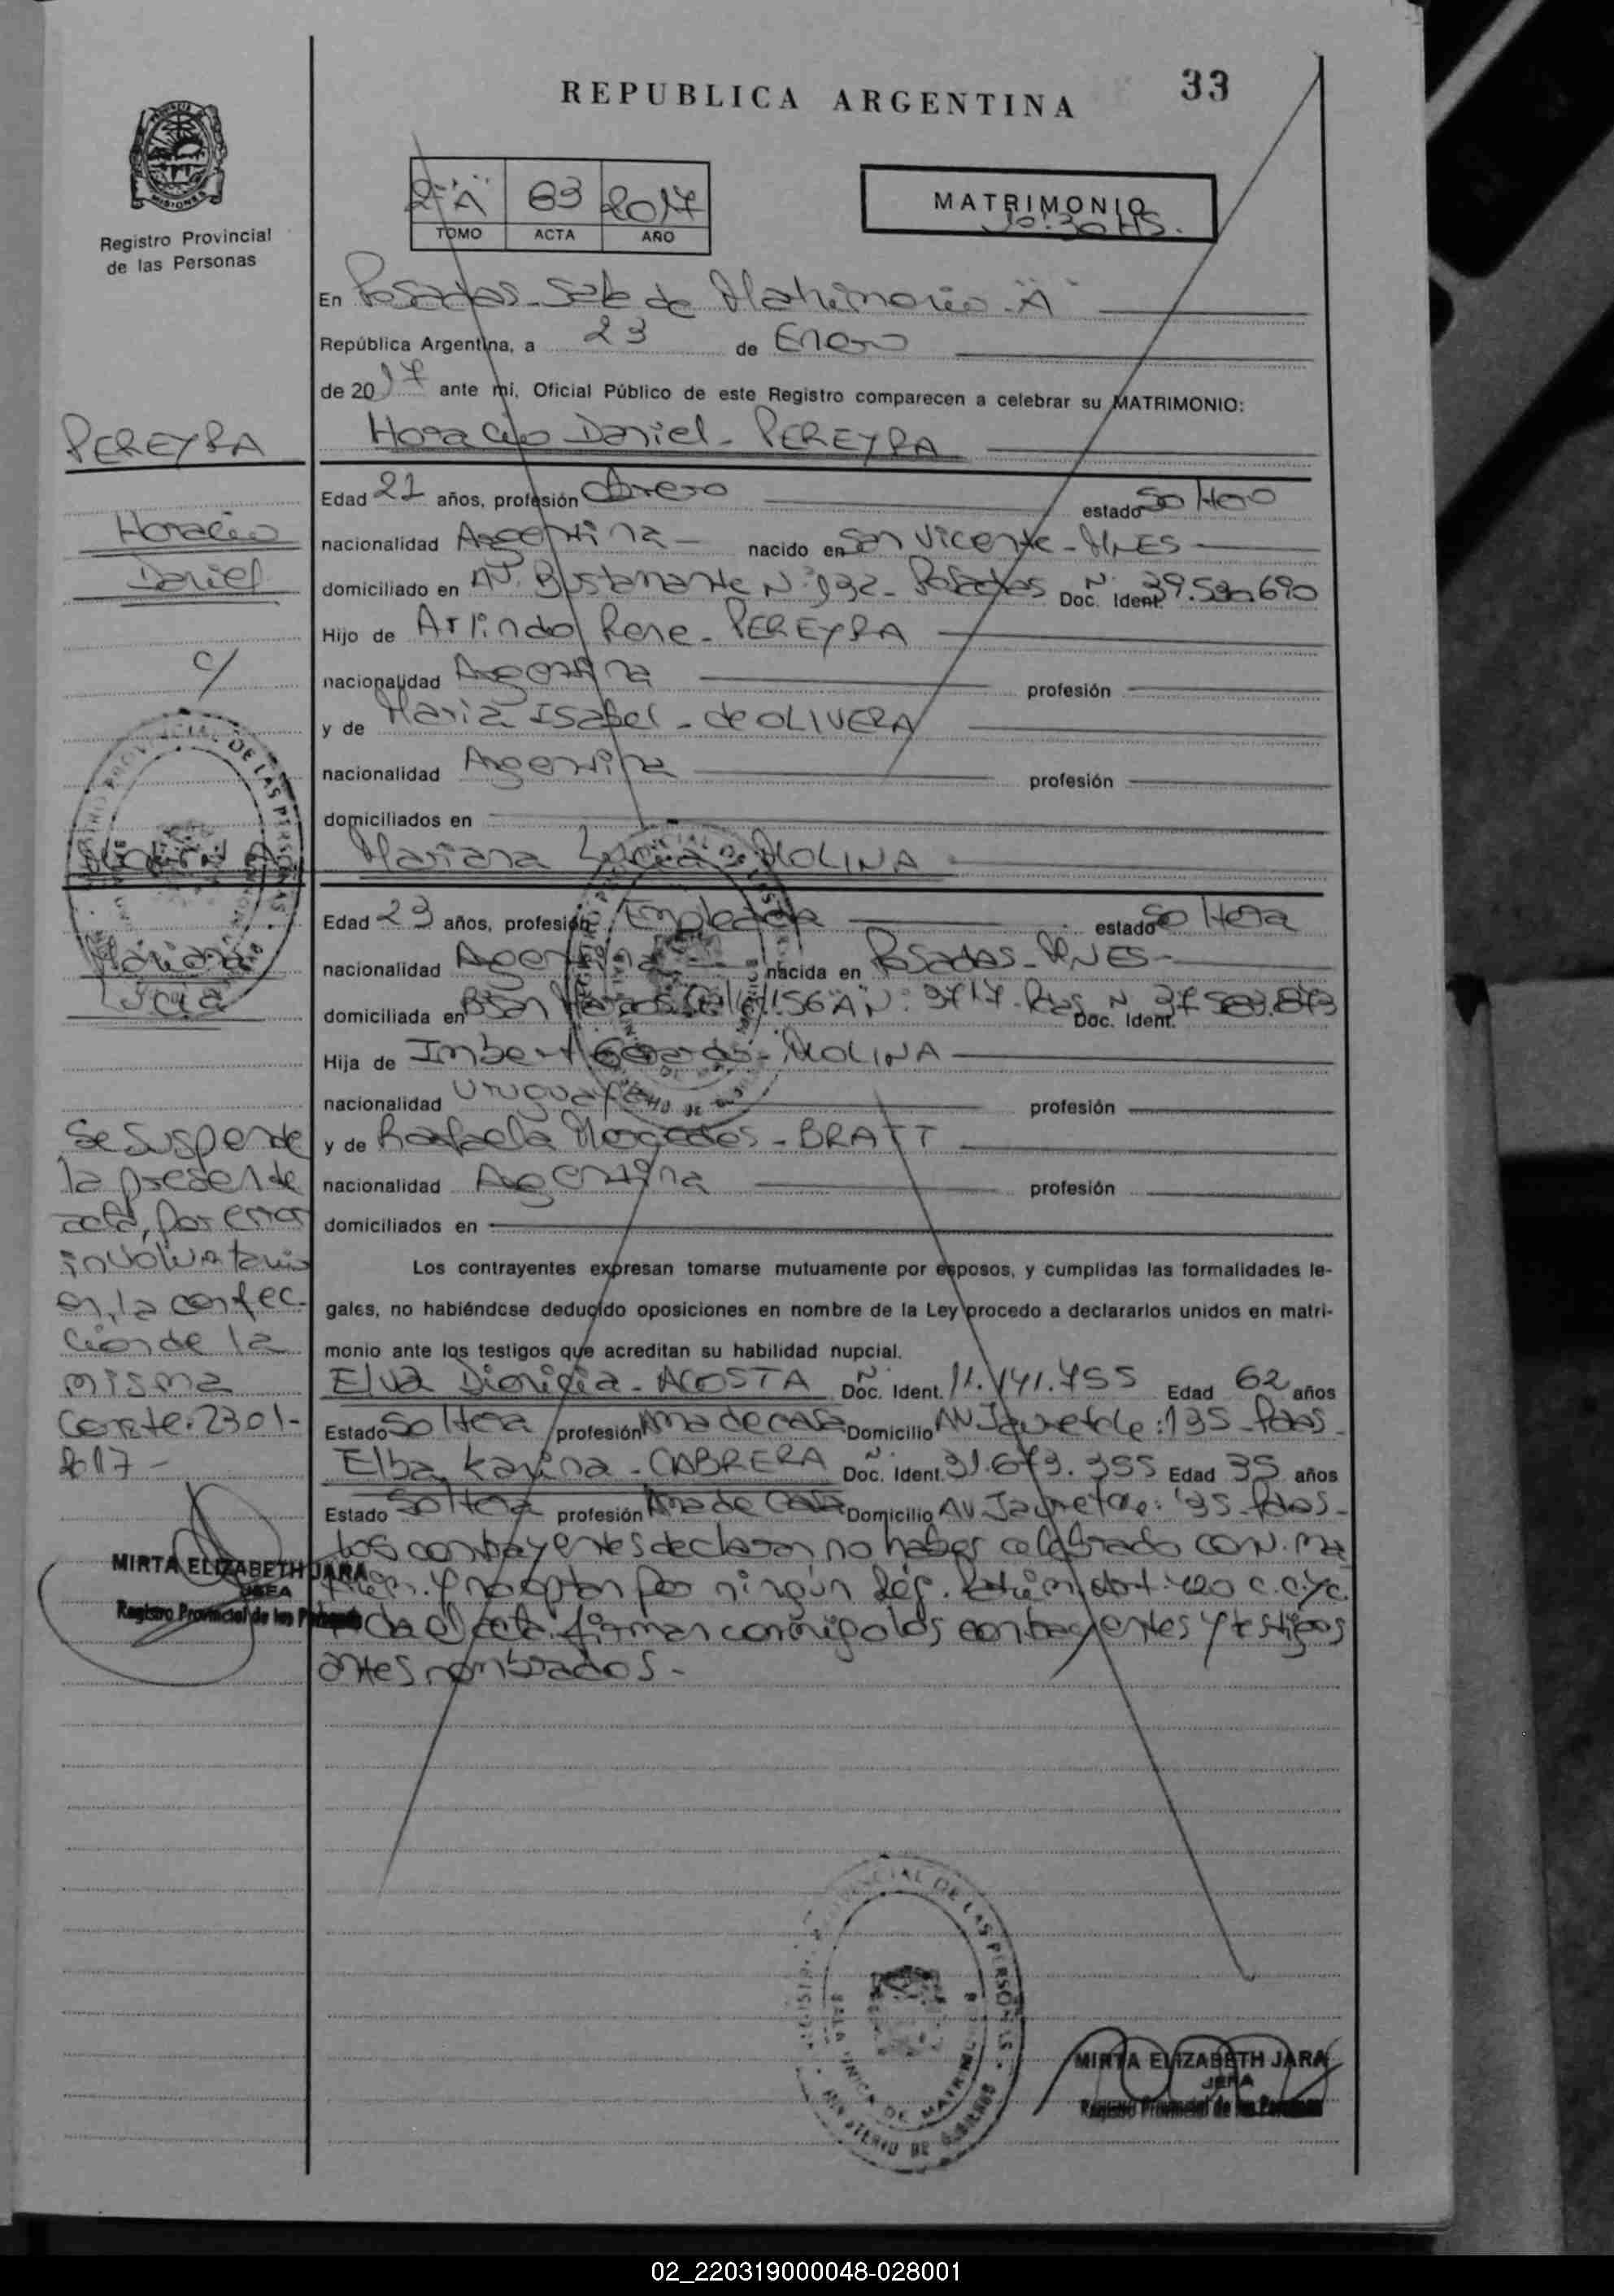 REPUBLICA ARGENTINA
33
MISIONES
Registro Provincial
de las Personas
2º "A" 83 2017
TOMO ACTA AÑO
MATRIMONIO
10:30 HS.
En Posadas - Sala de Matrimonio - "A"
República Argentina, a 23 de Enero
de 2017 ante mí, Oficial Público de este Registro comparecen a celebrar su MATRIMONIO:
PEREYRA
Horacio Daniel - PEREYRA
Edad 21 años, profesión Obrero estado Soltero
Horacio
nacionalidad Argentina - nacido en San Vicente - MNES
Daniel
domiciliado en AV. Bustamante Nº 192 - Posadas Doc. Ident. Nº 39.590.690
Hijo de Arlindo Rene - PEREYRA
c/
nacionalidad Argentina profesión
y de Maria Isabel - de OLIVERA
nacionalidad Argentina profesión
domiciliados en
MOLINA
Mariana Lucia - MOLINA
Edad 23 años, profesión Empleada estado Soltera
Mariana
nacionalidad Argentina nacida en Posadas - MNES -
Lucia
domiciliada en Doc. Ident. Nº
Hija de MOLINA
nacionalidad Uruguaya profesión
y de Rafaela Mercedes - BRATT
nacionalidad Argentina profesión
domiciliados en
Se suspende
la presente
acta, por error
involuntario
en la confec-
ción de la
misma
Conste. 23-01-
2017 -
Los contrayentes expresan tomarse mutuamente por esposos, y cumplidas las formalidades le-
gales, no habiéndose deducido oposiciones en nombre de la Ley procedo a declararlos unidos en matri-
monio ante los testigos que acreditan su habilidad nupcial.
Elva Dionicia - ACOSTA Doc. Ident. Nº 11.141.755 Edad 62 años
Estado Soltera profesión Ama de casa Domicilio AV Jauretche: 195 - Pdas -
Elba Karina - CABRERA Doc. Ident. Nº 31.673.355 Edad 35 años
Estado Soltera profesión Ama de Casa Domicilio AV Jauretche: 195 - Pdas -
Los contrayentes declaran no haber celebrado CON. Ma
y no optan por ningún
acta firman conmigo los contrayentes y testigos
antes nombrados. -
MIRTA ELIZABETH JARA
JEFA
Registro Provincial de las Personas
MIRTA ELIZABETH JARA
JEFA
Registro Provincial de las Personas
02_220319000048-028001